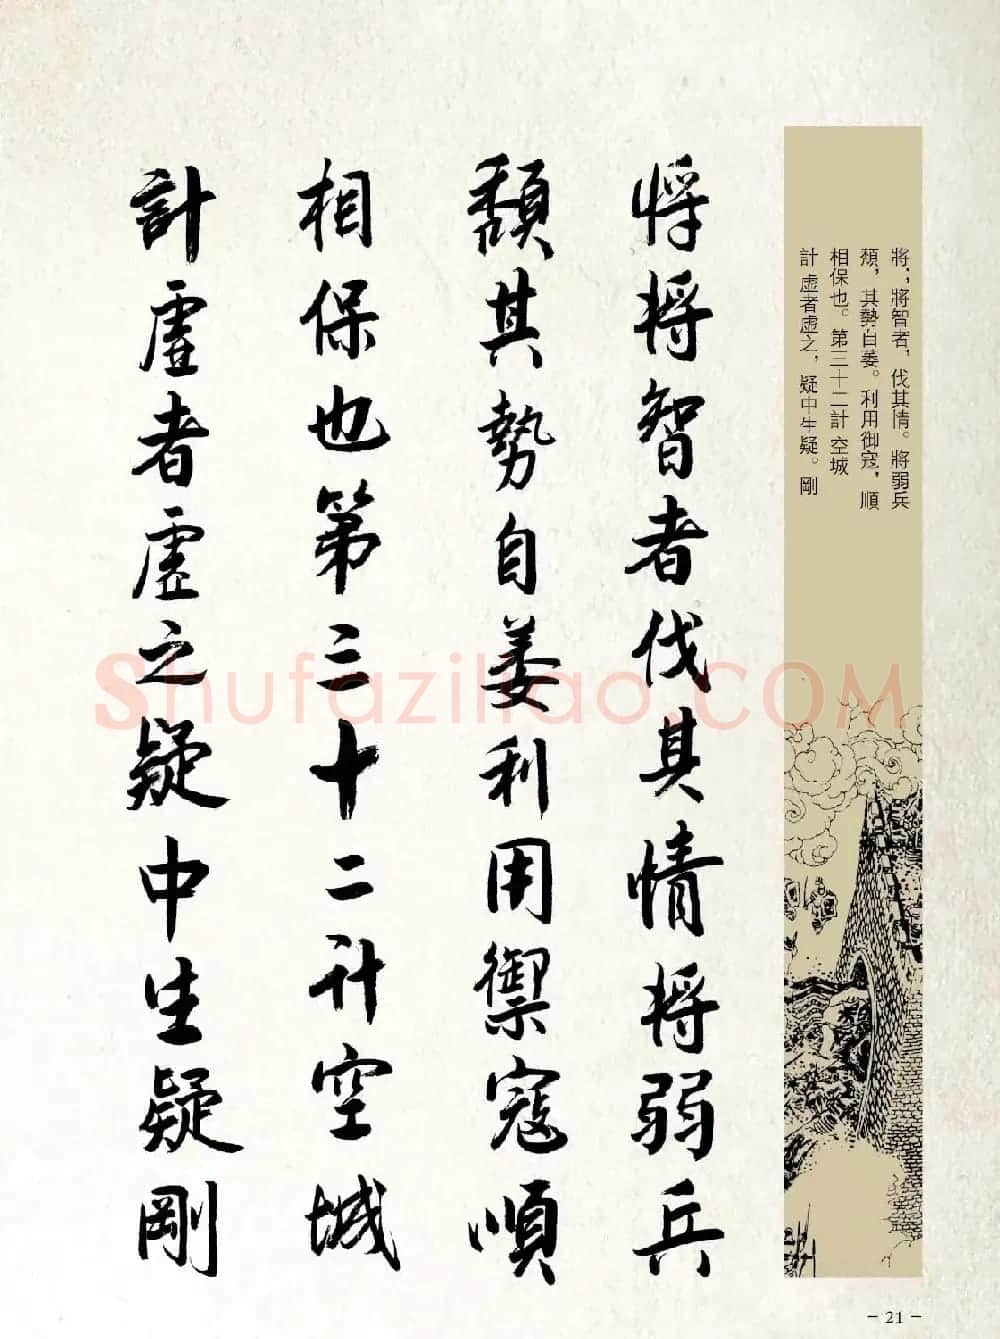 將將智者伐其情將弱兵
頹其勢自萎利用禦寇順
相保也第三十二計空城
計虛者虛之疑中生疑剛
將；將智者，伐其情。將弱兵
頹，其勢自萎。利用御寇，順
相保也。第三十二計 空城
計 虛者虛之，疑中生疑。剛
Shufaziliao.COM
- 21 -